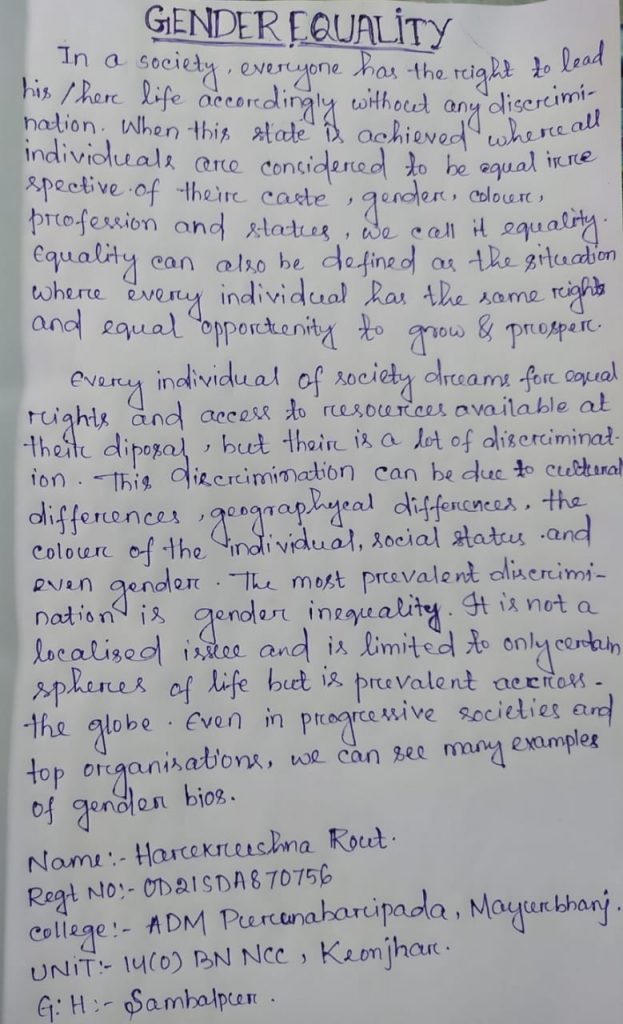 GENDER EQUALITY
In a society, everyone has the right to lead
his / her life accordingly without any discrimi-
nation. When this state is achieved where all
individuals are considered to be equal irre
spective of their caste, gender, colour,
profession and status, we call it equality.
Equality can also be defined as the situation
where every individual has the same rights
and equal opportunity to grow & prosper.
Every individual of society dreams for equal
rights and access to resources available at
their diposal, but their is a lot of discriminat-
ion. This discrimination can be due to cultural
differences, geographycal differences, the
colour of the individual, social status and
even gender. The most prevalent discrimi-
nation is gender inequality. It is not a
localised issue and is limited to only certain
spheres of life but is prevalent accross -
the globe. Even in progressive societies and
top organisations, we can see many examples
of gender bios.
Name:- Harekrushna Rout.
Regt NO:- OD21SDA870756
college:- ADM Purunabaripada, Mayurbhanj.
UNIT:- 14(O) BN NCC, Keonjhar.
G.H:- Sambalpur.